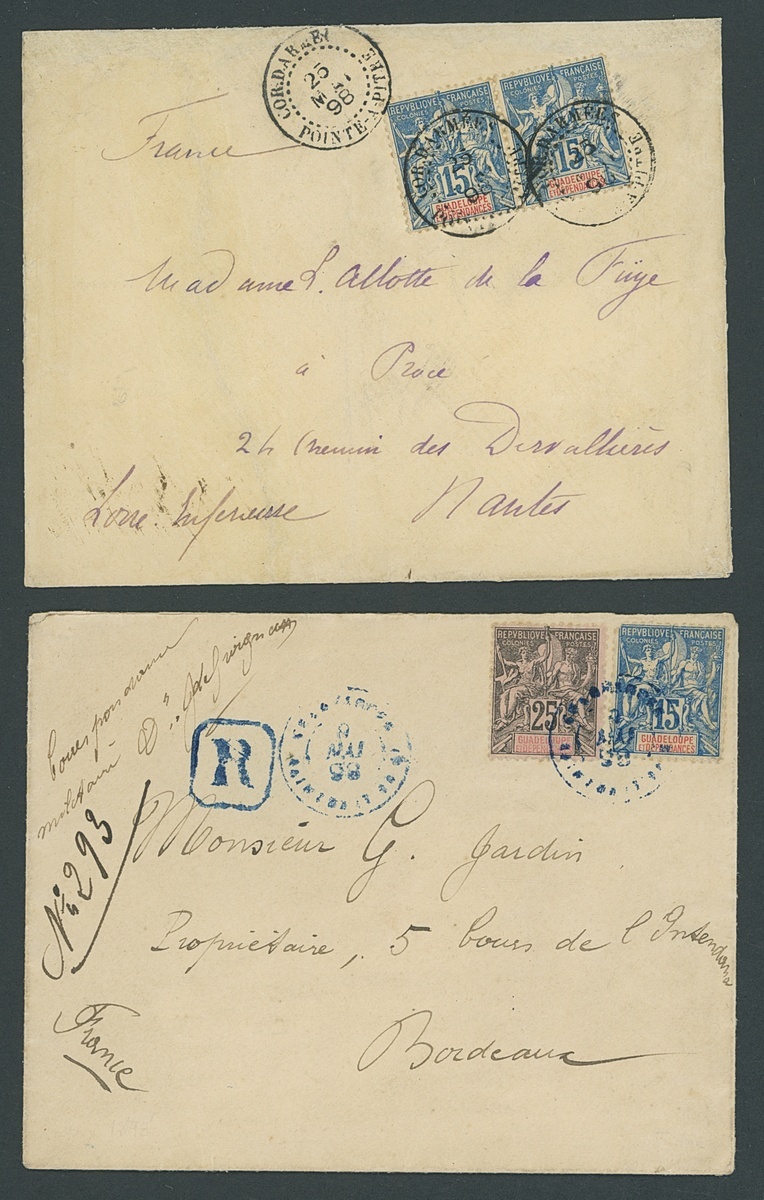 COR.D.ARMEES
POINTE-A-PITRE
25
98
REPVBLIQVE FRANÇAISE
COLONIES POSTES
15
GUADELOUPE
ET DÉPENDANCES
REPVBLIQVE FRANÇAISE
COLONIES POSTES
15
GUADELOUPE
ET DÉPENDANCES
France
Madame L. Allotte de la Füye
à Procé
24 Chemin des Dervallières
Loire Inférieure Nantes
Correspondance
militaire
REPVBLIQVE FRANÇAISE
COLONIES POSTES
25
GUADELOUPE
ET DÉPENDANCES
REPVBLIQVE FRANÇAISE
COLONIES POSTES
15
GUADELOUPE
ET DÉPENDANCES
R
8
MAI
99
No 293
Monsieur G. Jardin
Propriétaire, 5 Cours de l'Intendance
France
Bordeaux